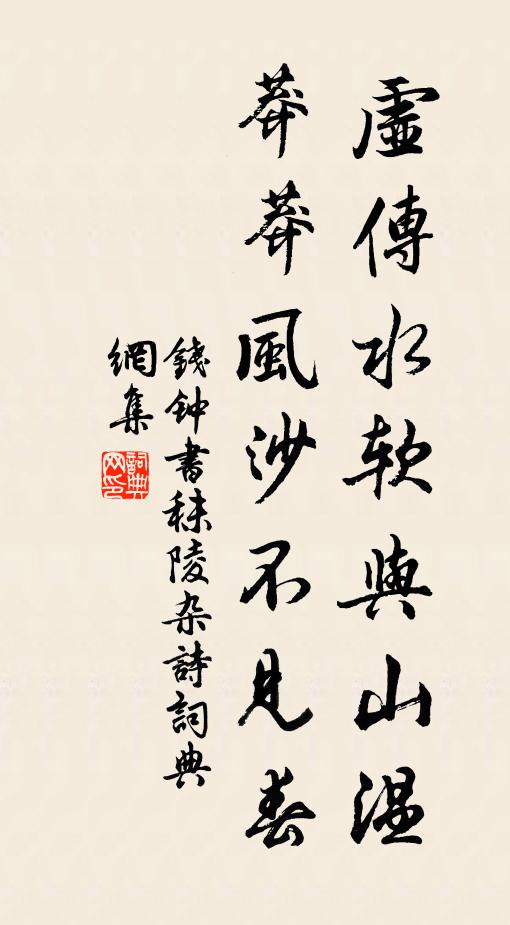 虛傳水軟與山溫
莽莽風沙不見春
錢钟書秣陵杂詩詞典
網集
詞典網印